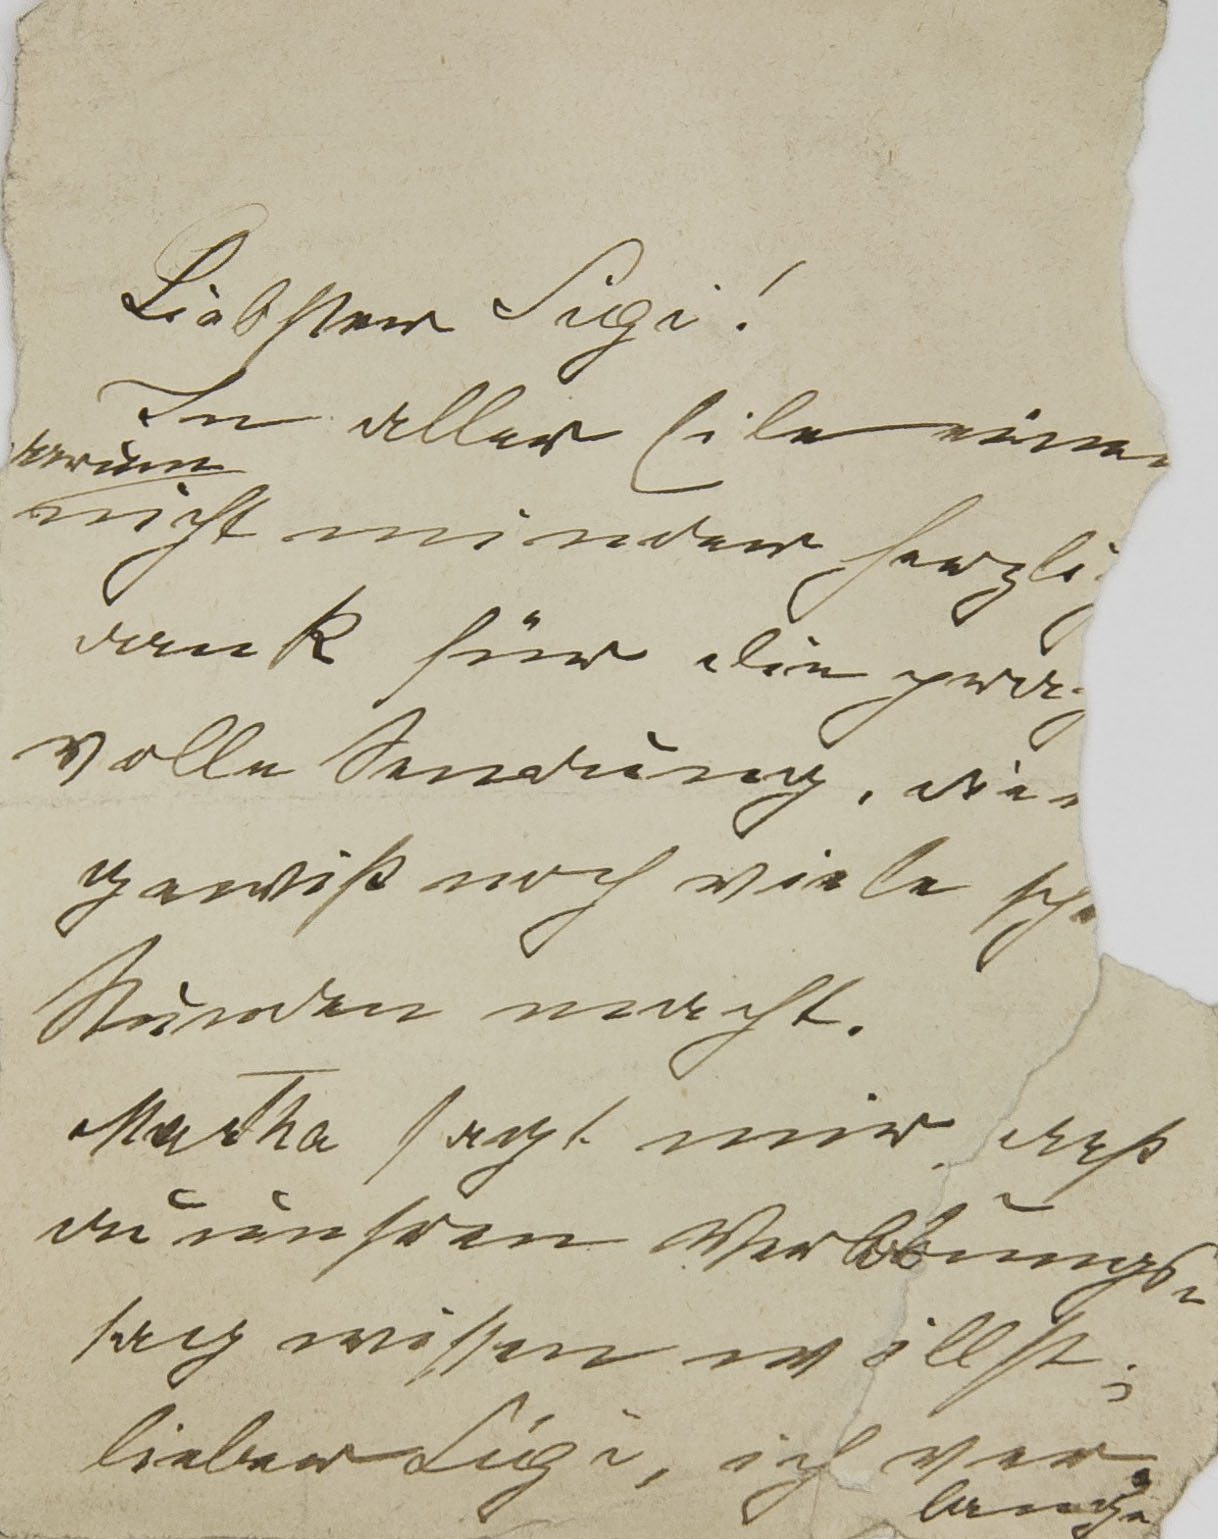 Liebster Sigi!
In aller Eile einen
darum
nicht minder herzlich
dank für die pracht
volle Sendung, die
gewiß noch viele sch
Stunden macht.
Martha sagt mir daß
du unsren Verlobungs-
tag wissen willst;
lieber Sigi, ich ver
lange